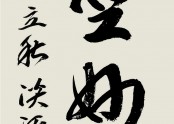 空妙
立秋淡